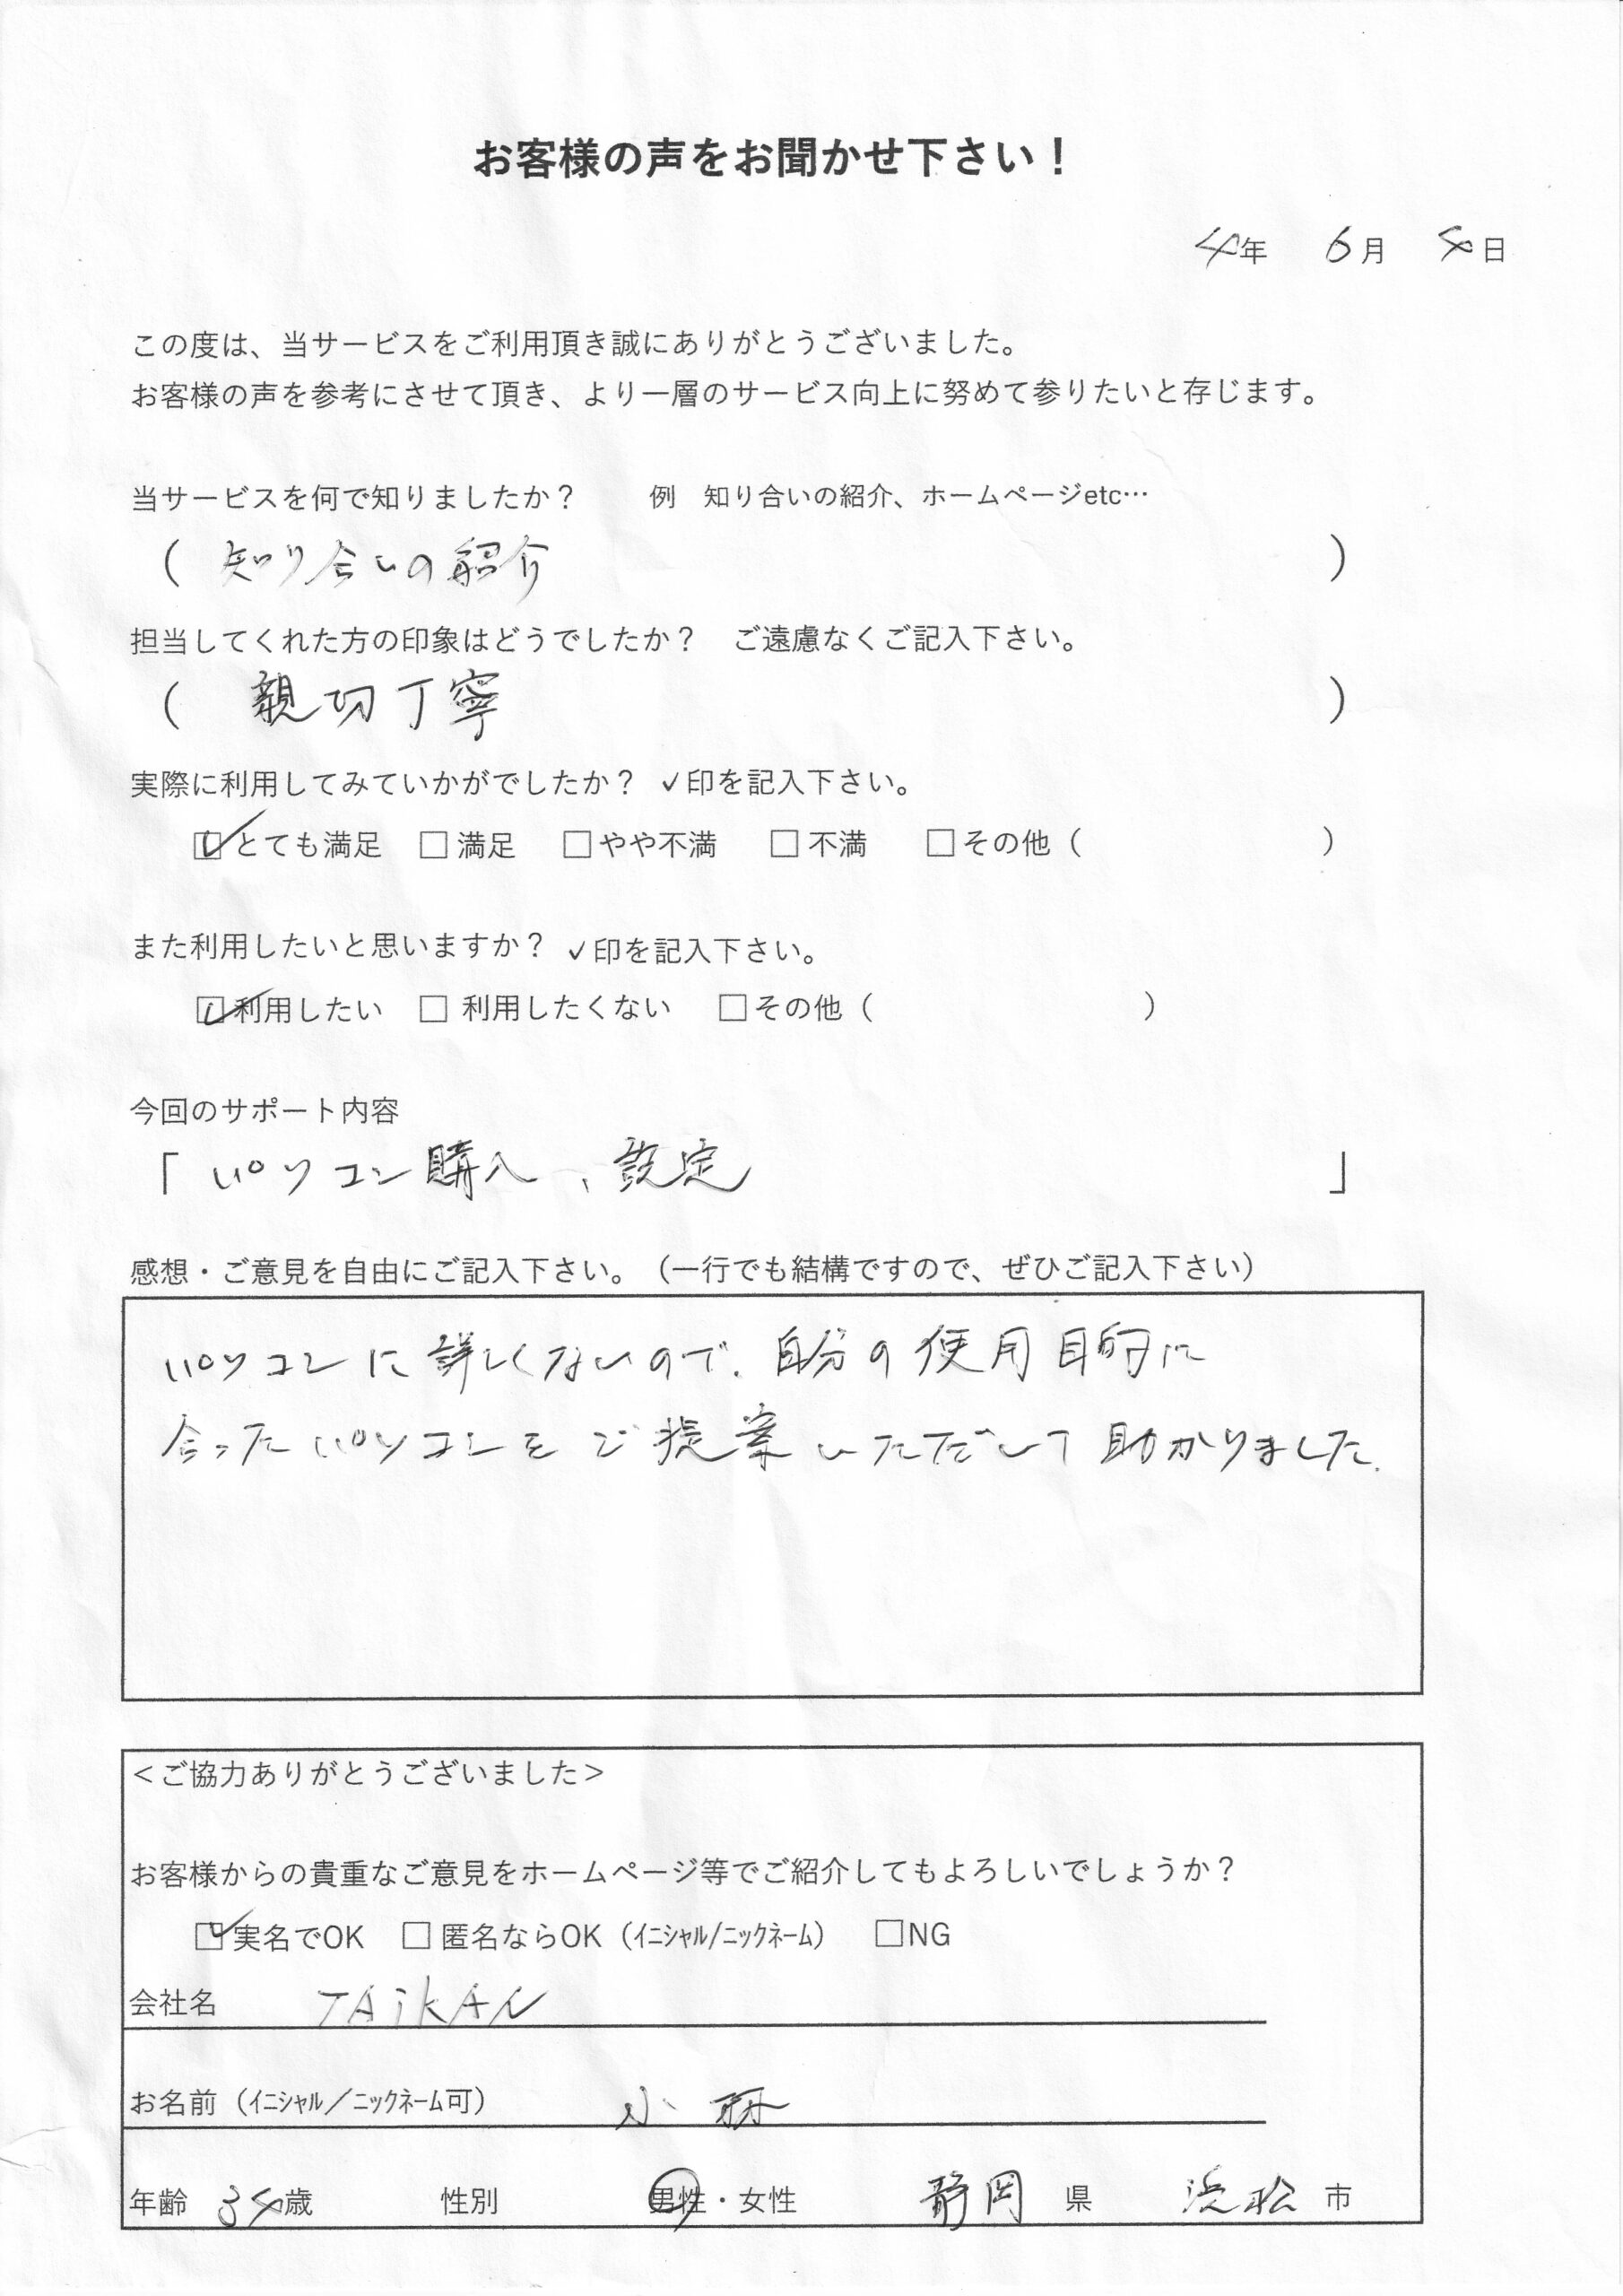 お客様の声をお聞かせ下さい！
4年 6月 8日
この度は、当サービスをご利用頂き誠にありがとうございました。
お客様の声を参考にさせて頂き、より一層のサービス向上に努めて参りたいと存じます。
当サービスを何で知りましたか？ 例 知り合いの紹介、ホームページetc…
（ 知り合いの紹介 ）
担当してくれた方の印象はどうでしたか？ ご遠慮なくご記入下さい。
（ 親切丁寧 ）
実際に利用してみていかがでしたか？ ✓印を記入下さい。
☑とても満足 □満足 □やや不満 □不満 □その他（ ）
また利用したいと思いますか？ ✓印を記入下さい。
☑利用したい □ 利用したくない □その他（ ）
今回のサポート内容
「 パソコン購入、設定 」
感想・ご意見を自由にご記入下さい。（一行でも結構ですので、ぜひご記入下さい）
パソコンに詳しくないので、自分の使用目的に
合ったパソコンをご提案いただいて助かりました.
＜ご協力ありがとうございました＞
お客様からの貴重なご意見をホームページ等でご紹介してもよろしいでしょうか？
☑実名でOK □ 匿名ならOK（ｲﾆｼｬﾙ/ﾆｯｸﾈｰﾑ） □NG
会社名 TAiKAN
お名前（ｲﾆｼｬﾙ／ﾆｯｸﾈｰﾑ可） 小林
年齢 34歳 性別 男性・女性 静岡 県 浜松 市